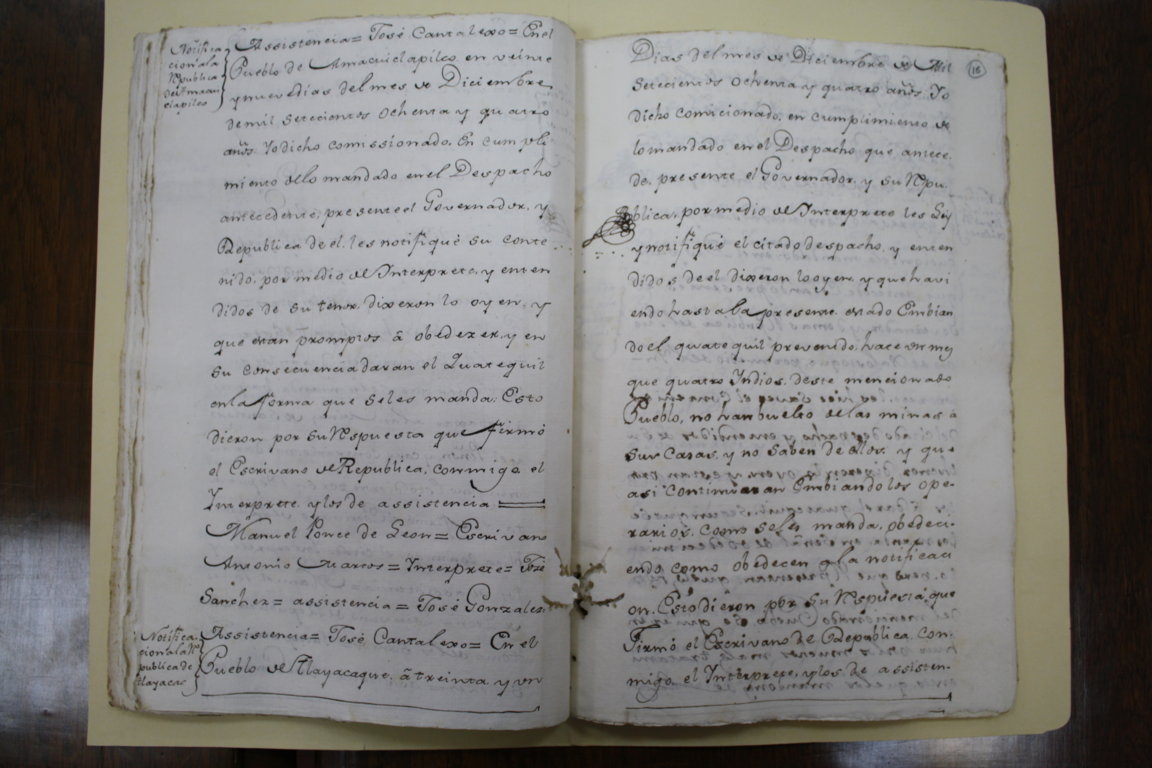 Notifica
cion a la
Rᵉpublica
de Amacui
clapilco
Assistencia = José Cantalexo = En el
Pueblo de Amacuiclapilco en veinte
y nueve dias del mes de Diciembre
de mil setecientos ochenta y quatro
años. Yo dicho comissionado, en cumpli
miento de lo mandado en el Despacho
antecedente, presente el Governador, y
Republica de él, les notifiqué su conte
nido, por medio del Interprete, y enten
didos de su tenor, dixeron lo oyen, y
que estan promptos â obedezer, y en
su consecuencia daran el Quatequil
en la forma que se les manda. Esto
dieron por su Rᵉspuesta que firmó
el Escrivano de Republica, conmigo, el
Interprete, y los de assistencia =
Manuel Ponce de Leon = Escrivano
Antonio Marcos = Interprete = José
Sanchez = assistencia = José Gonzales
Notifica
cion a la Rᵉ
publica de
tlayacac
Assistencia = José Cantalexo = En el
Pueblo de Tlayacaque, â treinta, y un
16
Dias del mes de Diciembre de Mil
setecientos ochenta y quatro años. Yo
dicho comicionado, en cumplimiento de
lo mandado en el Despacho que antece
de, presente el Governador, y su Rᵉpu
blica, por medio del Interprete les Ley
y notifiqué el citado despacho, y enten
didos de el dixeron lo oyen, y que havi
endo hasta la presente estado Embian
do el quatequil prevenido, hace un mes
que quatro Indios, deste mencionado
Pueblo, no han buelto de las minas a
sus Casas, y no saben de ellos, y que
asi continuaran Embiando los ope-
rarios, como se les manda, obedeci-
endo como obedecen a la notificaci
on. Esto dieron por su Rᵉspuesta, que
Firmó el Escrivano de Republica, con-
migo, el Interprete, y los de assisten-